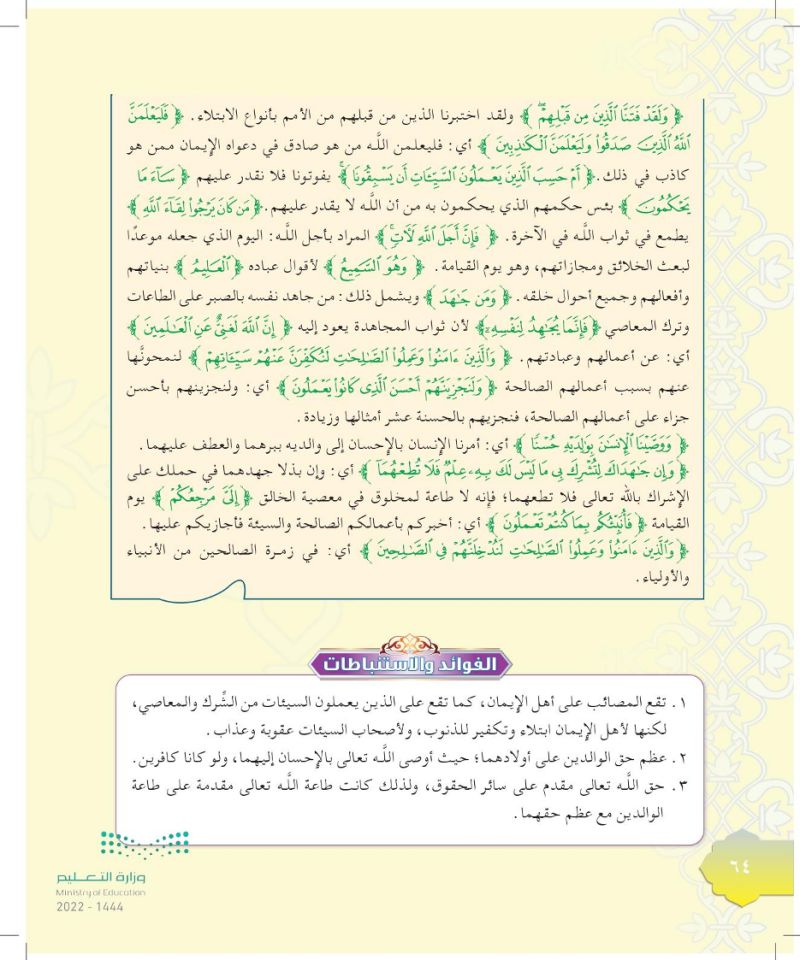 ﴿ وَلَقَدْ فَتَنَّا الَّذِينَ مِن قَبْلِهِمْ ﴾ ولقد اختبرنا الذين من قبلهم من الأمم بأنواع الابتلاء. ﴿ فَلَيَعْلَمَنَّ
اللَّهُ الَّذِينَ صَدَقُوا وَلَيَعْلَمَنَّ الْكَاذِبِينَ ﴾ أي: فليعلمن اللَّه من هو صادق في دعواه الإيمان ممن هو
كاذب في ذلك. ﴿ أَمْ حَسِبَ الَّذِينَ يَعْمَلُونَ السَّيِّئَاتِ أَن يَسْبِقُونَا ﴾ يفوتونا فلا نقدر عليهم ﴿ سَآءَ مَا
يَحْكُمُونَ ﴾ بئس حكمهم الذي يحكمون به من أن اللَّه لا يقدر عليهم. ﴿ مَن كَانَ يَرْجُوا لِقَآءَ اللَّهِ ﴾
يطمع في ثواب اللَّه في الآخرة. ﴿ فَإِنَّ أَجَلَ اللَّهِ لَآتٍ ﴾ المراد بأجل اللَّه: اليوم الذي جعله موعدًا
لبعث الخلائق ومجازاتهم، وهو يوم القيامة. ﴿ وَهُوَ السَّمِيعُ ﴾ لأقوال عباده ﴿ الْعَلِيمُ ﴾ بنياتهم
وأفعالهم وجميع أحوال خلقه. ﴿ وَمَن جَاهَدَ ﴾ ويشمل ذلك: من جاهد نفسه بالصبر على الطاعات
وترك المعاصي ﴿ فَإِنَّمَا يُجَاهِدُ لِنَفْسِهِ ﴾ لأن ثواب المجاهدة يعود إليه ﴿ إِنَّ اللَّهَ لَغَنِيٌّ عَنِ الْعَالَمِينَ ﴾
أي: عن أعمالهم وعبادتهم. ﴿ وَالَّذِينَ ءَامَنُوا وَعَمِلُوا الصَّالِحَاتِ لَنُكَفِّرَنَّ عَنْهُمْ سَيِّئَاتِهِمْ ﴾ لنمحونَّها
عنهم بسبب أعمالهم الصالحة ﴿ وَلَنَجْزِيَنَّهُمْ أَحْسَنَ الَّذِي كَانُوا يَعْمَلُونَ ﴾ أي: ولنجزينهم بأحسن
جزاء على أعمالهم الصالحة، فنجزيهم بالحسنة عشر أمثالها وزيادة.
﴿ وَوَصَّيْنَا الْإِنسَانَ بِوَالِدَيْهِ حُسْنًا ﴾ أي: أمرنا الإنسان بالإحسان إلى والديه ببرهما والعطف عليهما.
﴿ وَإِن جَاهَدَاكَ لِتُشْرِكَ بِي مَا لَيْسَ لَكَ بِهِ عِلْمٌ فَلَا تُطِعْهُمَا ﴾ أي: وإن بذلا جهدهما في حملك على
الإشراك بالله تعالى فلا تطعهما؛ فإنه لا طاعة لمخلوق في معصية الخالق ﴿ إِلَيَّ مَرْجِعُكُمْ ﴾ يوم
القيامة ﴿ فَأُنَبِّئُكُم بِمَا كُنتُمْ تَعْمَلُونَ ﴾ أي: أخبركم بأعمالكم الصالحة والسيئة فأجازيكم عليها.
﴿ وَالَّذِينَ ءَامَنُوا وَعَمِلُوا الصَّالِحَاتِ لَنُدْخِلَنَّهُمْ فِي الصَّالِحِينَ ﴾ أي: في زمـرة الصالحين من الأنبياء
والأولياء.
الفوائد والاستنباطات
١. تقع المصائب على أهل الإيمان، كما تقع على الذين يعملون السيئات من الشِّرك والمعاصي،
لكنها لأهل الإيمان ابتلاء وتكفير للذنوب، ولأصحاب السيئات عقوبة وعذاب.
٢. عظم حق الوالدين على أولادهما؛ حيث أوصى اللَّه تعالى بالإحسان إليهما، ولو كانا كافرين.
٣. حق اللَّه تعالى مقدم على سائر الحقوق، ولذلك كانت طاعة اللَّه تعالى مقدمة على طاعة
الوالدين مع عظم حقهما.
٦٤
وزارة التعـليم
Ministry of Education
2022 - 1444